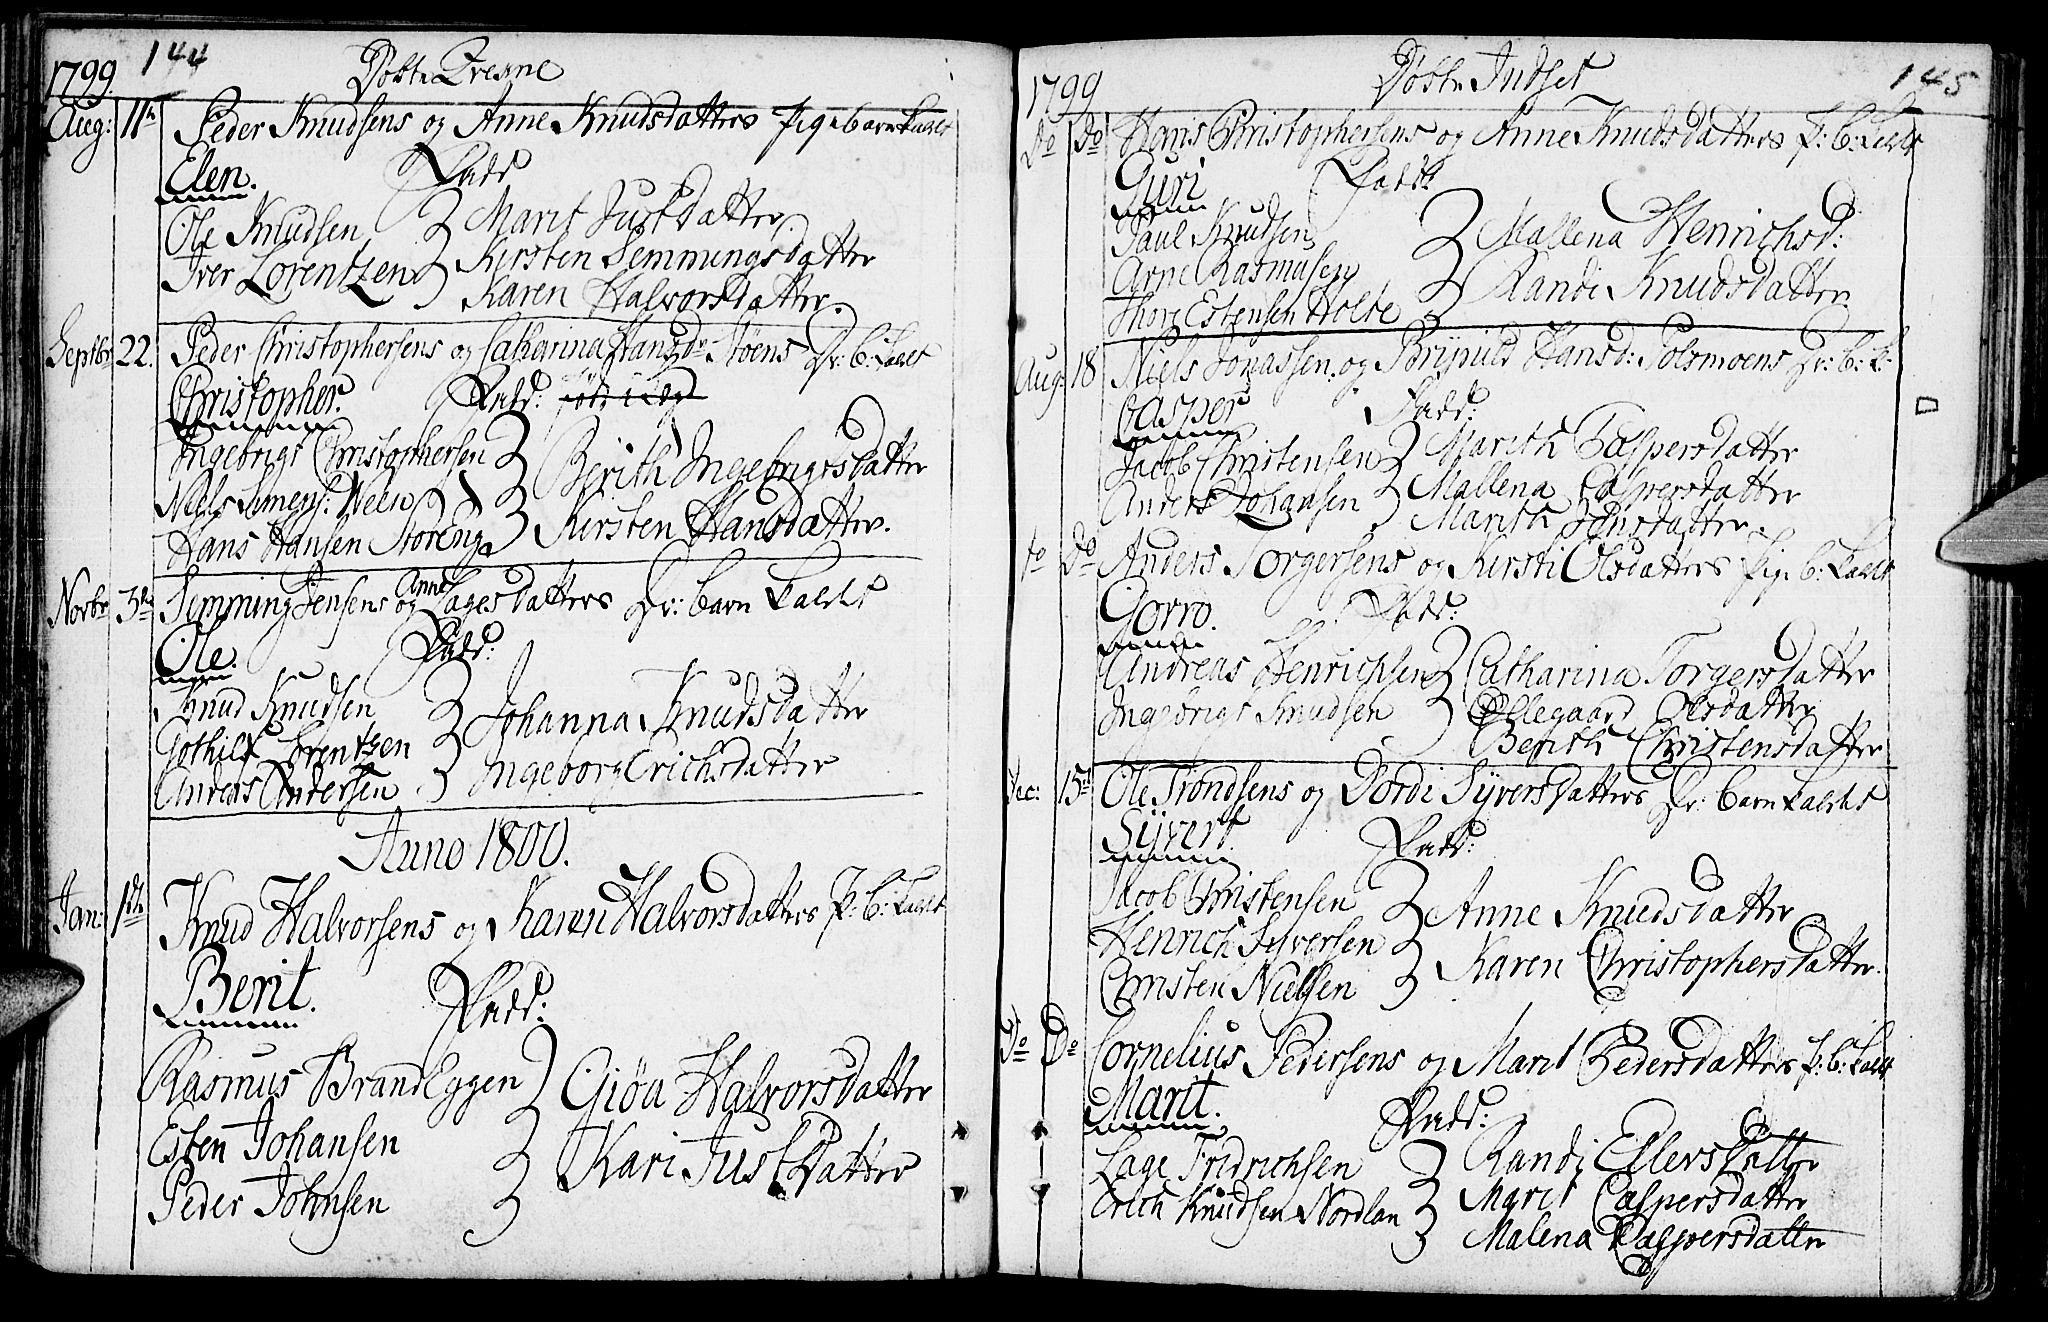 144
1799. Døbte Qvesne
Aug: 11te Peder Knudsens og Anne Knudsdatters Pige barn kaldt
Elen. Fadd
Ole Knudsen Marit Justdatter
Iver Lorentzen Kirsten Semmingsdatter
Karen Halvorsdatter.
Septbr 22. Peder Christophersens og Catharina Hansdr Støens Dr: b: kaldt
Christopher. Fadd:
Ingebrigt Christophersen Berith Ingebrigtsdatter
Niels Simens:
Hans Hansen Storeng Kirsten Hansdatter.
Novbr 3de Semming Jensens og Anne Lagesdatters Dr: barn kaldet
Ole. Fadd:
Knud Knudsen Johanna Knudsdatter
Gothilf Lorentzen
Anders Andersen Ingeborg Erichsdatter
Anno 1800.
Jan: 1te Knud Halvorsens og Karen Halvorsdatters P: b: kaldt
Berit. Fadd:
Rasmus BrandEggen Giøa Halvorsdatter
Esten Johansen
Peder Johnsen Kari Justdatter
145
1799 Døbte Indset
Do Do Hans Christophersens og Anne Knudsdatters P: b: kaldt
Guri Fadd:
Paul Knudsen Mallena Henrichsd:
Arne Rasmusen Randi Knudsdatter
Thore Estensen Holte
Aug: 18 Niels Jonassen og Hansd: Dr: b: k:
Casper Fadd:
Jacob Christensen Marith Caspersdatter
Anders Johansen Mallena Caspersdatter
Marith Johnsdatter.
Do Do Anders Torgersens og Kirsti Olsdatters Pige b: kaldt
Gorro. Fadd:
Andreas Henrichsen Catharina Torgersdatter
Ingebrigt Knudsen Ollegaard Olsdatter
Berith Christensdatter
Dec: 15de Ole Trondsens og Dordi Syversdatters Dr: barn kaldet
Syvert. Fadd:
Jacob Christensen Anne Knudsdatter
Henrich Syversen
Christen Nielsen Karen Christophersdatter.
Do Do Cornelius Pedersens og Marit Pedersdatters P: b: kaldt
Marit. Fadd:
Lage Fridrichsen Randi Ellersdatter
Erich Knudsen Nordlan Marit Caspersdatter
Malena Caspersdatter